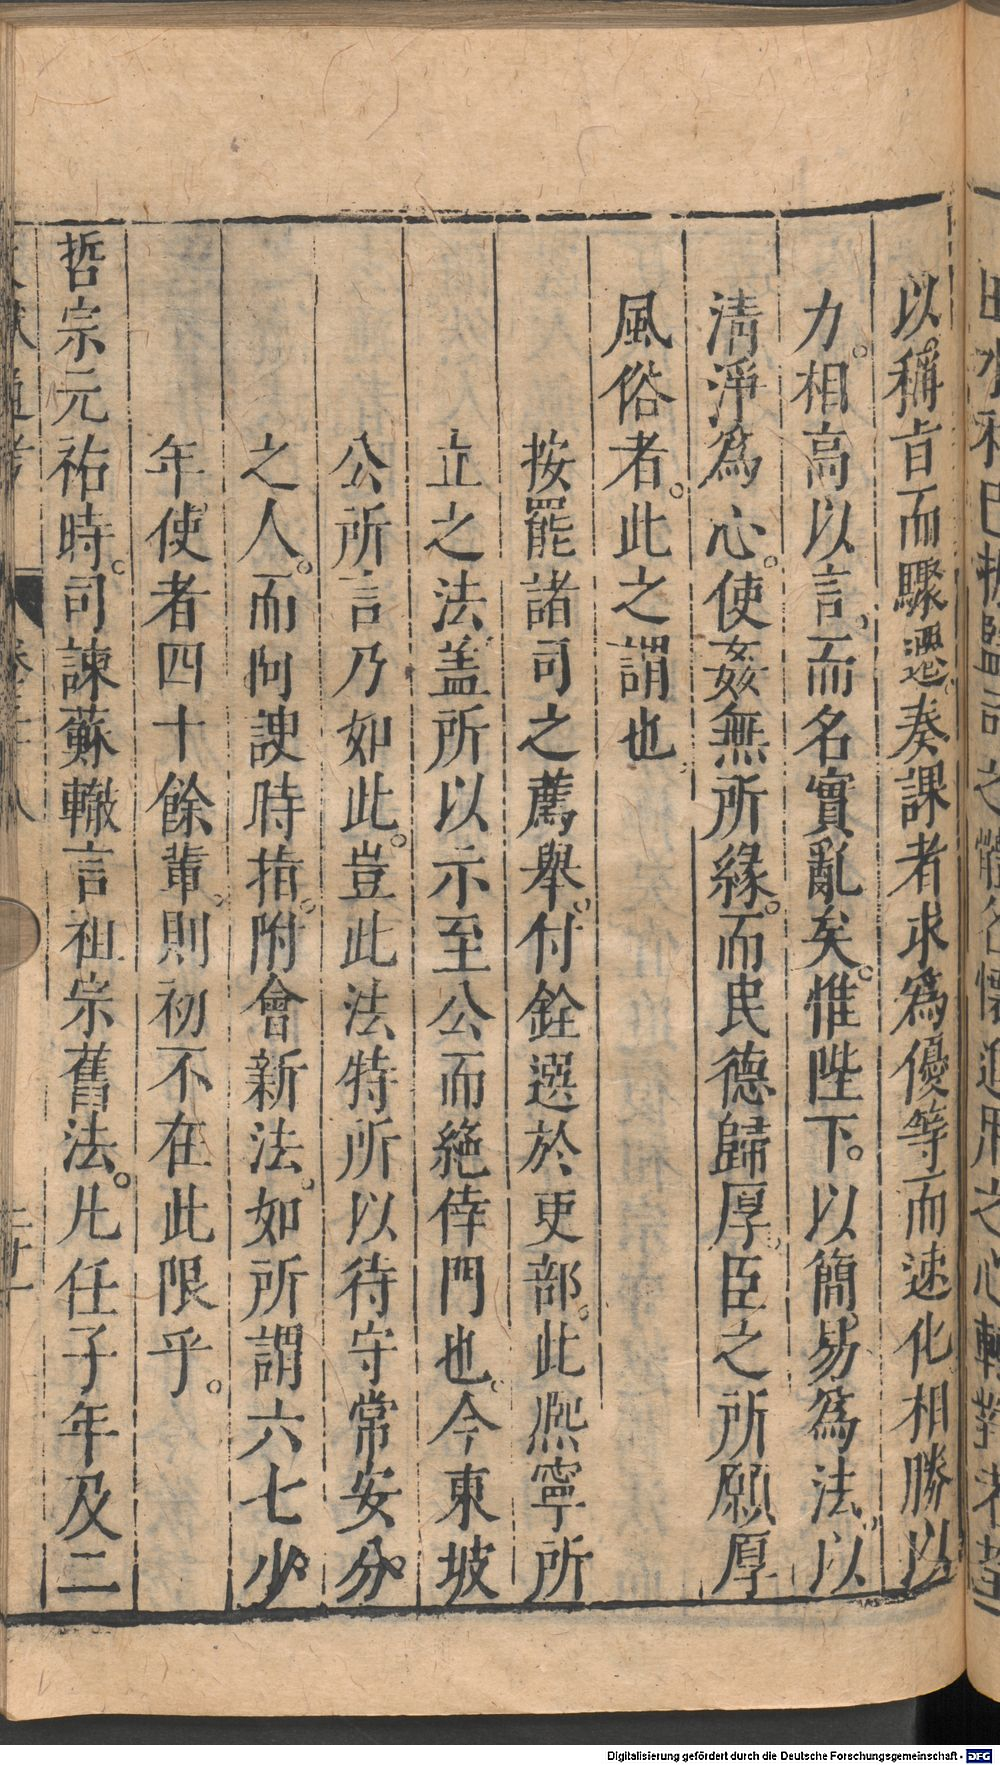 以稱旨而驟遷奏課者求爲優等而速化相勝以
力相高以言而名實亂矣惟陛下以簡易爲法以
淸淨爲心使姦無所緣而民德歸厚臣之所願厚
風俗者此之謂也
按罷諸司之薦舉付銓選於吏部此熙寧所
立之法盖所以示至公而絶倖門也今東坡
公所言乃如此豈此法特所以待守常安分
之人而阿諛時指附會新法如所謂六七少
年使者四十餘輩則初不在此限乎
哲宗元祐時司諫蘇轍言祖宗舊法凡任子年及二
Digitalisierung gefördert durch die Deutsche Forschungsgemeinschaft - DFG